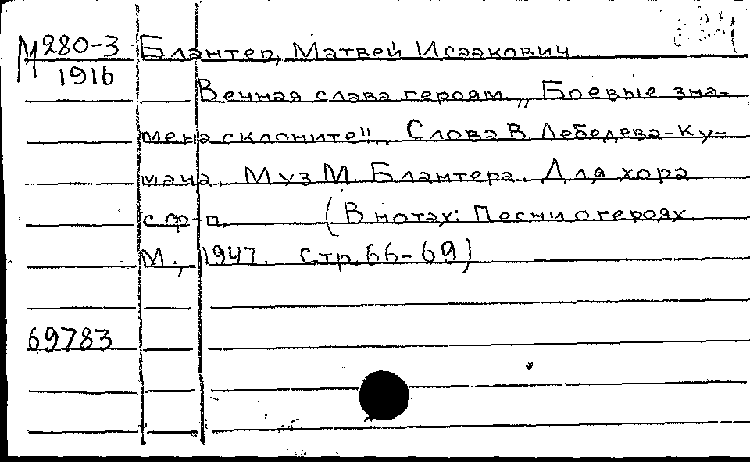 М280-3 Блантер, Матвей Исаакович
1916
Вечная слава героям. „Боевые зна-
мена склоните!!„ Слова В. Лебедева-Ку-
мача. Муз М. Блантера. Для хора
с ф-п. (В нотах: Песни о героях.
М., 1947. Стр. 66-69)
69783